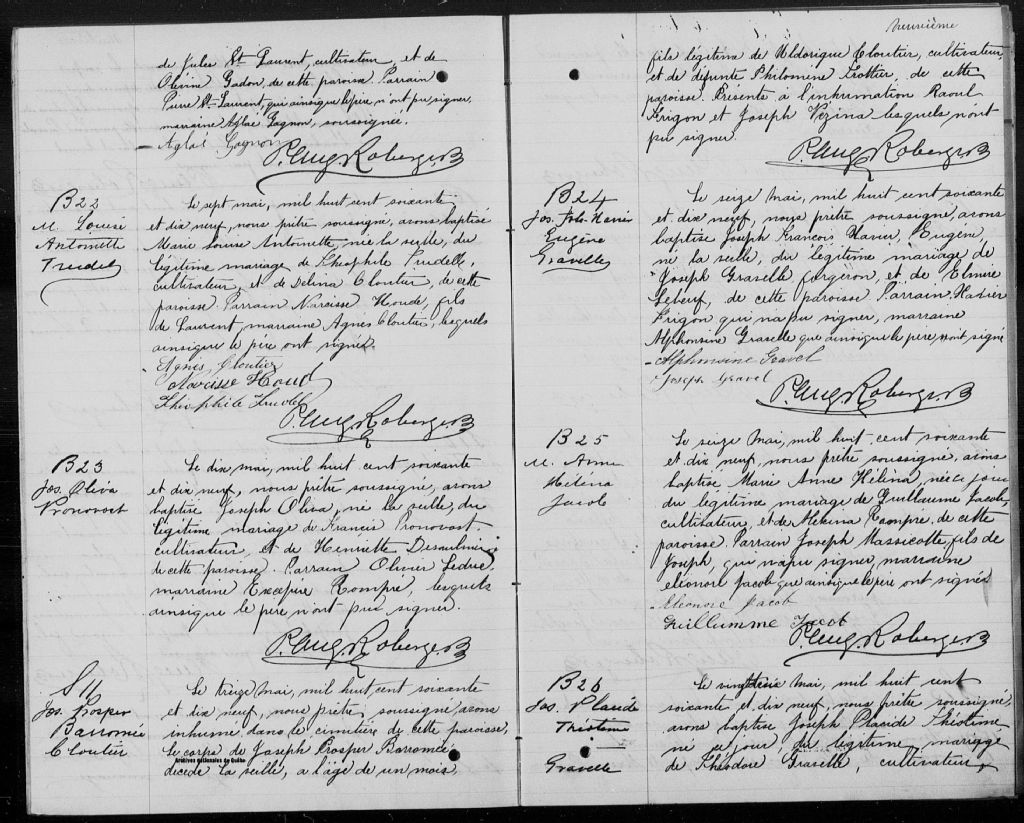 de Jules St Laurent, cultivateur, et de
Olivine Gadon, de cette paroisse. Parrain
Pierre St-Laurent, qui ainsi que le père, n'ont pu signer,
marraine Aglaé Gagnon, soussignée.
Aglaé Gagnon
P. Aug. Roberge
B22
M. Louise
Antoinette
Trudel
Le sept mai, mil huit cent soixante
et dix neuf, nous prêtre soussigné, avons baptisé
Marie Louise Antoinette, née la veille, du
légitime mariage de Théophile Trudelle,
cultivateur, et de Delina Cloutier, de cette
paroisse. Parrain Narcisse Houde, fils
de Laurent, marraine Agnès Cloutier, lesquels
ainsique le père ont signés.
Agnès Cloutier
Narcisse Houd
Théophile Trudel
P. Aug. Roberge
B23
Jos. Oliva
Pronovost
Le dix mai, mil huit cent soixante
et dix neuf, nous prêtre soussigné, avons
baptisé Joseph Oliva, né la veille, du
légitime mariage de Francis Pronovost,
cultivateur, et de Henriette Desaulniers
de cette paroisse. Parrain Olivier Leduc,
marraine Exépire Rompré, lesquels
ainsique le père n'ont pu signer.
P. Aug. Roberge
S
Jos. Prosper
Barromée
Cloutier
Le treize mai, mil huit cent soixante
et dix neuf, nous prêtre soussigné, avons
inhumé, dans le cimitière de cette paroisse,
le corps de Joseph Prosper Barromée
Archives nationales du Québec
décédé la veille, a l'âge de un mois,
neuvième
fils légitime de Uldorique Cloutier, cultivateur,
et de défunte Philomène Trottier, de cette
paroisse. Présents à l'inhumation Raoul
Frigon et Joseph Vézina lesquels n'ont
pu signer.
P. Aug. Roberge
B24
Jos. Xavier
Eugène
Gravelle
Le seize mai, mil huit cent soixante
et dix neuf, nous prêtre soussigné, avons
baptisé Joseph François Xavier, Eugène,
né la veille, du légitime mariage de
Joseph Gravelle forgeron, et de Elmire
Lebeuf, de cette paroisse. Parrain Xavier
Frigon qui n'a pu signer, marraine
Alphonsine Gravelle que ainsique le père, ont signé
Alphonsine Gravel
Joseph Gravel
P. Aug. Roberge
B25
M. Anne
Hélèna
Jacob
Le seize mai, mil huit cent soixante
et dix neuf, nous prêtre soussigné, avons
baptisé Marie Anne Hélèna, née ce jour
du légitime mariage de Guillaume Jacob,
cultivateurs, et de Rompré, de cette
paroisse. Parrain Joseph Massicotte, fils de
Joseph, qui n'a pu signer, marraine
eléonore Jacob que ainsique le père ont signés
Eléonore Jacob
Guillumme Jacob
P. Aug. Roberge
B26
Jos. Placide
Théotime
Gravelle
Le mai, mil huit cent
soixante et dix neuf, nous prêtre soussigné,
avons baptisé Joseph Placide Théotime
né ce jour, du légitime mariage
de Théodore Gravelle, cultivateur,